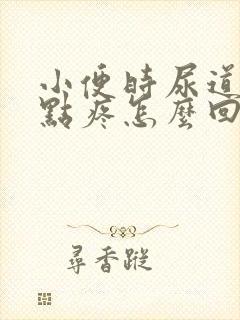 小便時尿道
點疼怎麼回
尋香蹤